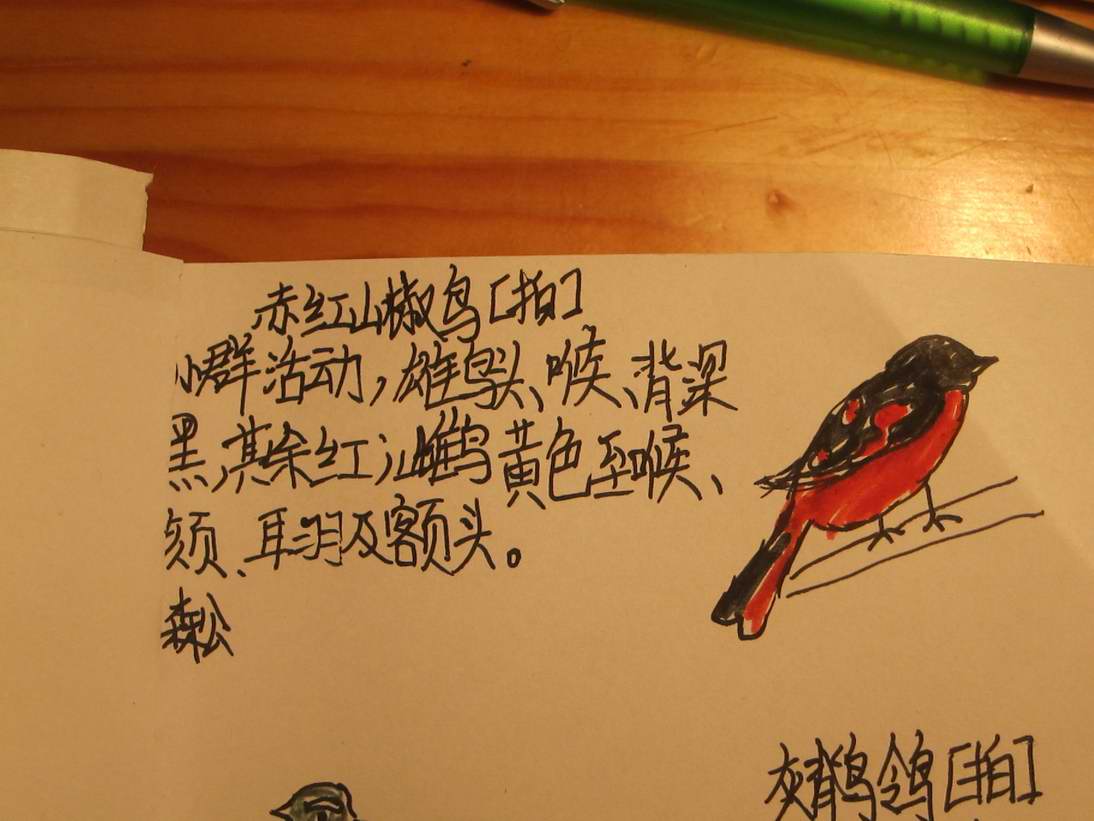 赤红山椒鸟[拍]
小群活动,雄鸟头、喉、背深
黑,其余红;雌鸟黄色至喉、
颏、耳羽及额头。
森松
灰鹡鸰[拍]